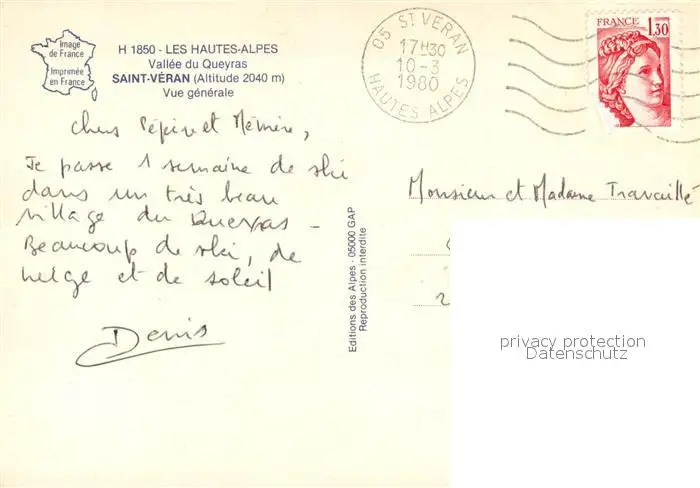 Image
de France
Imprimée
en France
H 1850 - LES HAUTES-ALPES
Vallée du Queyras
SAINT-VÉRAN (Altitude 2040 m)
Vue générale
05 ST VERAN
17H30
10-3
1980
HAUTES ALPES
FRANCE
1,30
Chers Pépère et Mémère,
Je passe 1 semaine de ski
dans un très beau
village du Queyras -
Beaucoup de ski, de
neige et de soleil
Denis
Editions des Alpes - 05000 GAP
Reproduction interdite
Monsieur et Madame Travaillé
2
privacy protection
Datenschutz